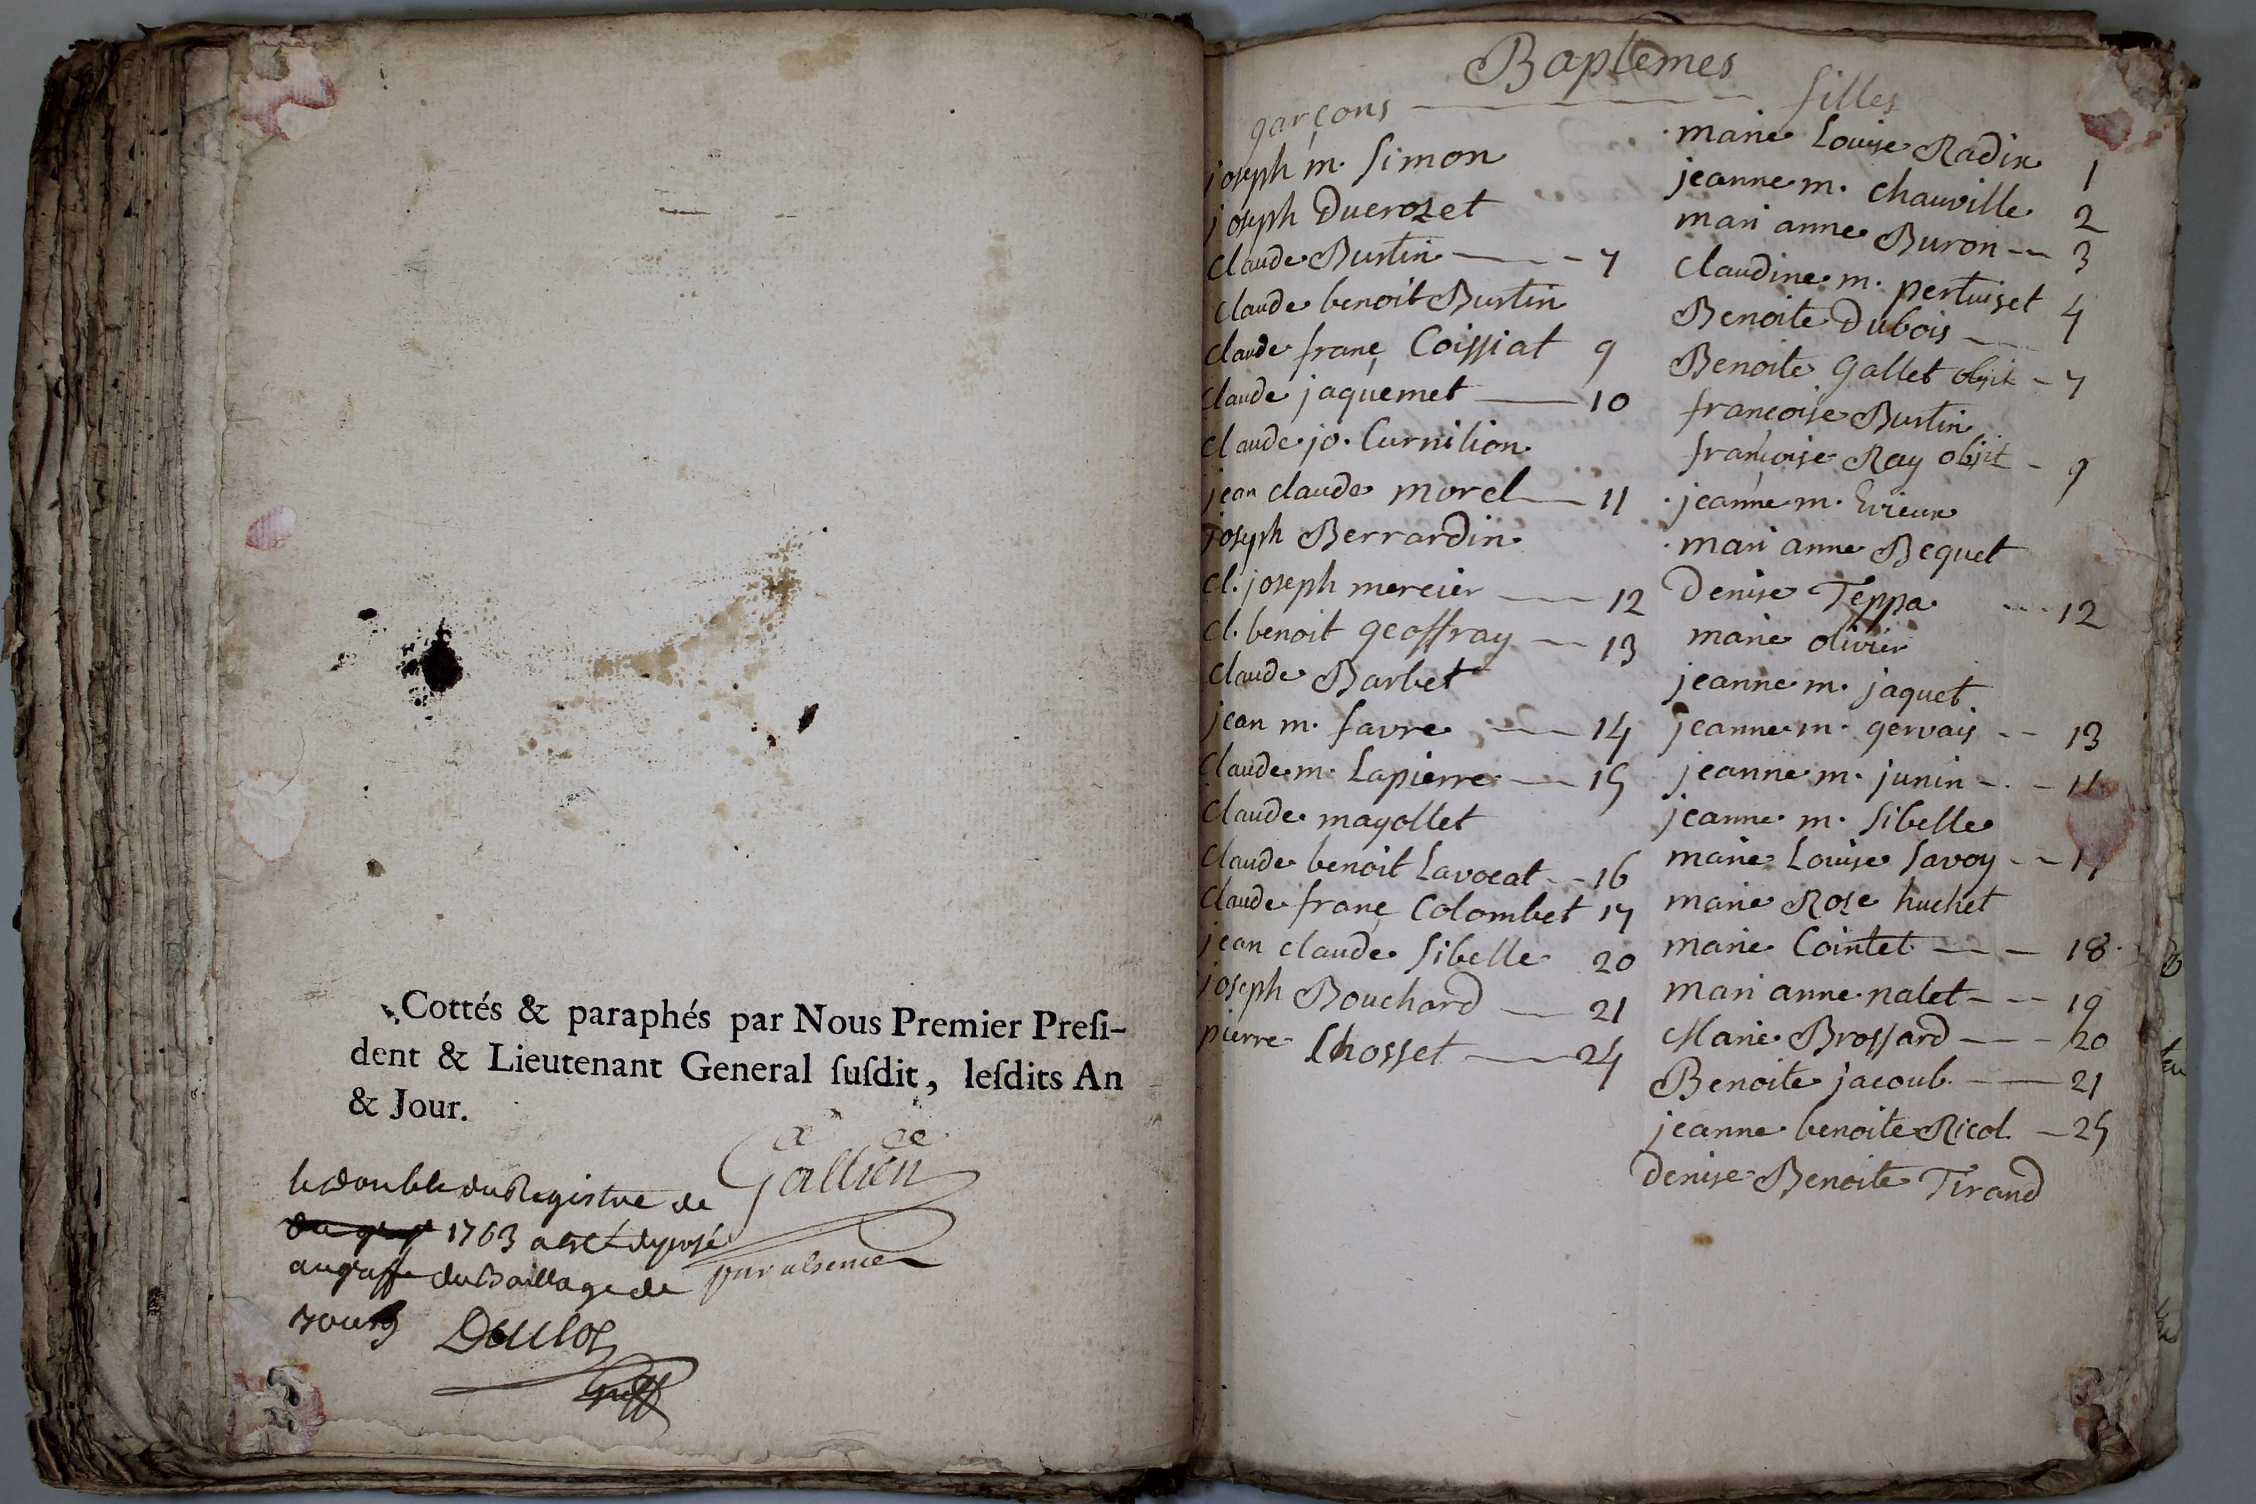 Cottés & paraphés par Nous Premier Presi-
dent & Lieutenant General susdit, lesdits An
& Jour.
Gallien
le double du Registre de
1763 a esté deposé
par absence
au greffe du Baillage de
Bourg
Duclos
Greff
Baptemes
garçons
joseph m. Simon
joseph Ducrozet
claude Burtin 7
claude benoit Burtin
claude franç Coissiat 9
claude jaquemet 10
claude jo. Curnilion
jean claude morel 11
joseph Berrardin
cl. joseph mercier 12
cl. benoit geoffray 13
claude Barbet
jean m. favre 14
claude m. Lapierre 15
claude mayollet
claude benoit Lavocat 16
claude franç Colombet 17
jean claude Sibelle 20
joseph Bouchard 21
pierre Chosset 24
filles
marie Louise Radix 1
jeanne m. chauville 2
mari anne Buron 3
claudine m. pertuiset 4
Benoite Dubois
Benoite Gallet objit 7
françoise Burtin
françoise Ray objit 9
jeanne m. Evieux
mari anne Bequet
Denise Teppa 12
marie olivier
jeanne m. jaquet
jeanne m. gervais 13
jeanne m. junin
jeanne m. Sibelle
marie Louise Savoy
marie Rose huchet
marie Cointet 18
mari anne nalet 19
Marie Brossard 20
Benoite jacoub 21
jeanne benoite Nicol 25
Denise Benoite Tirand